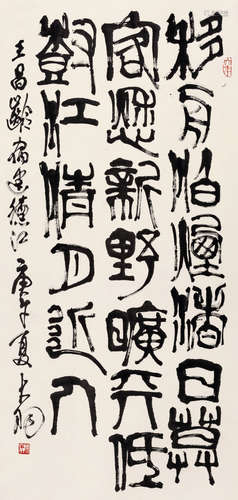 移舟泊煙渚日暮
客愁新野曠天低
樹江清月近人
王昌齡宿建德江 庚午夏 大羽